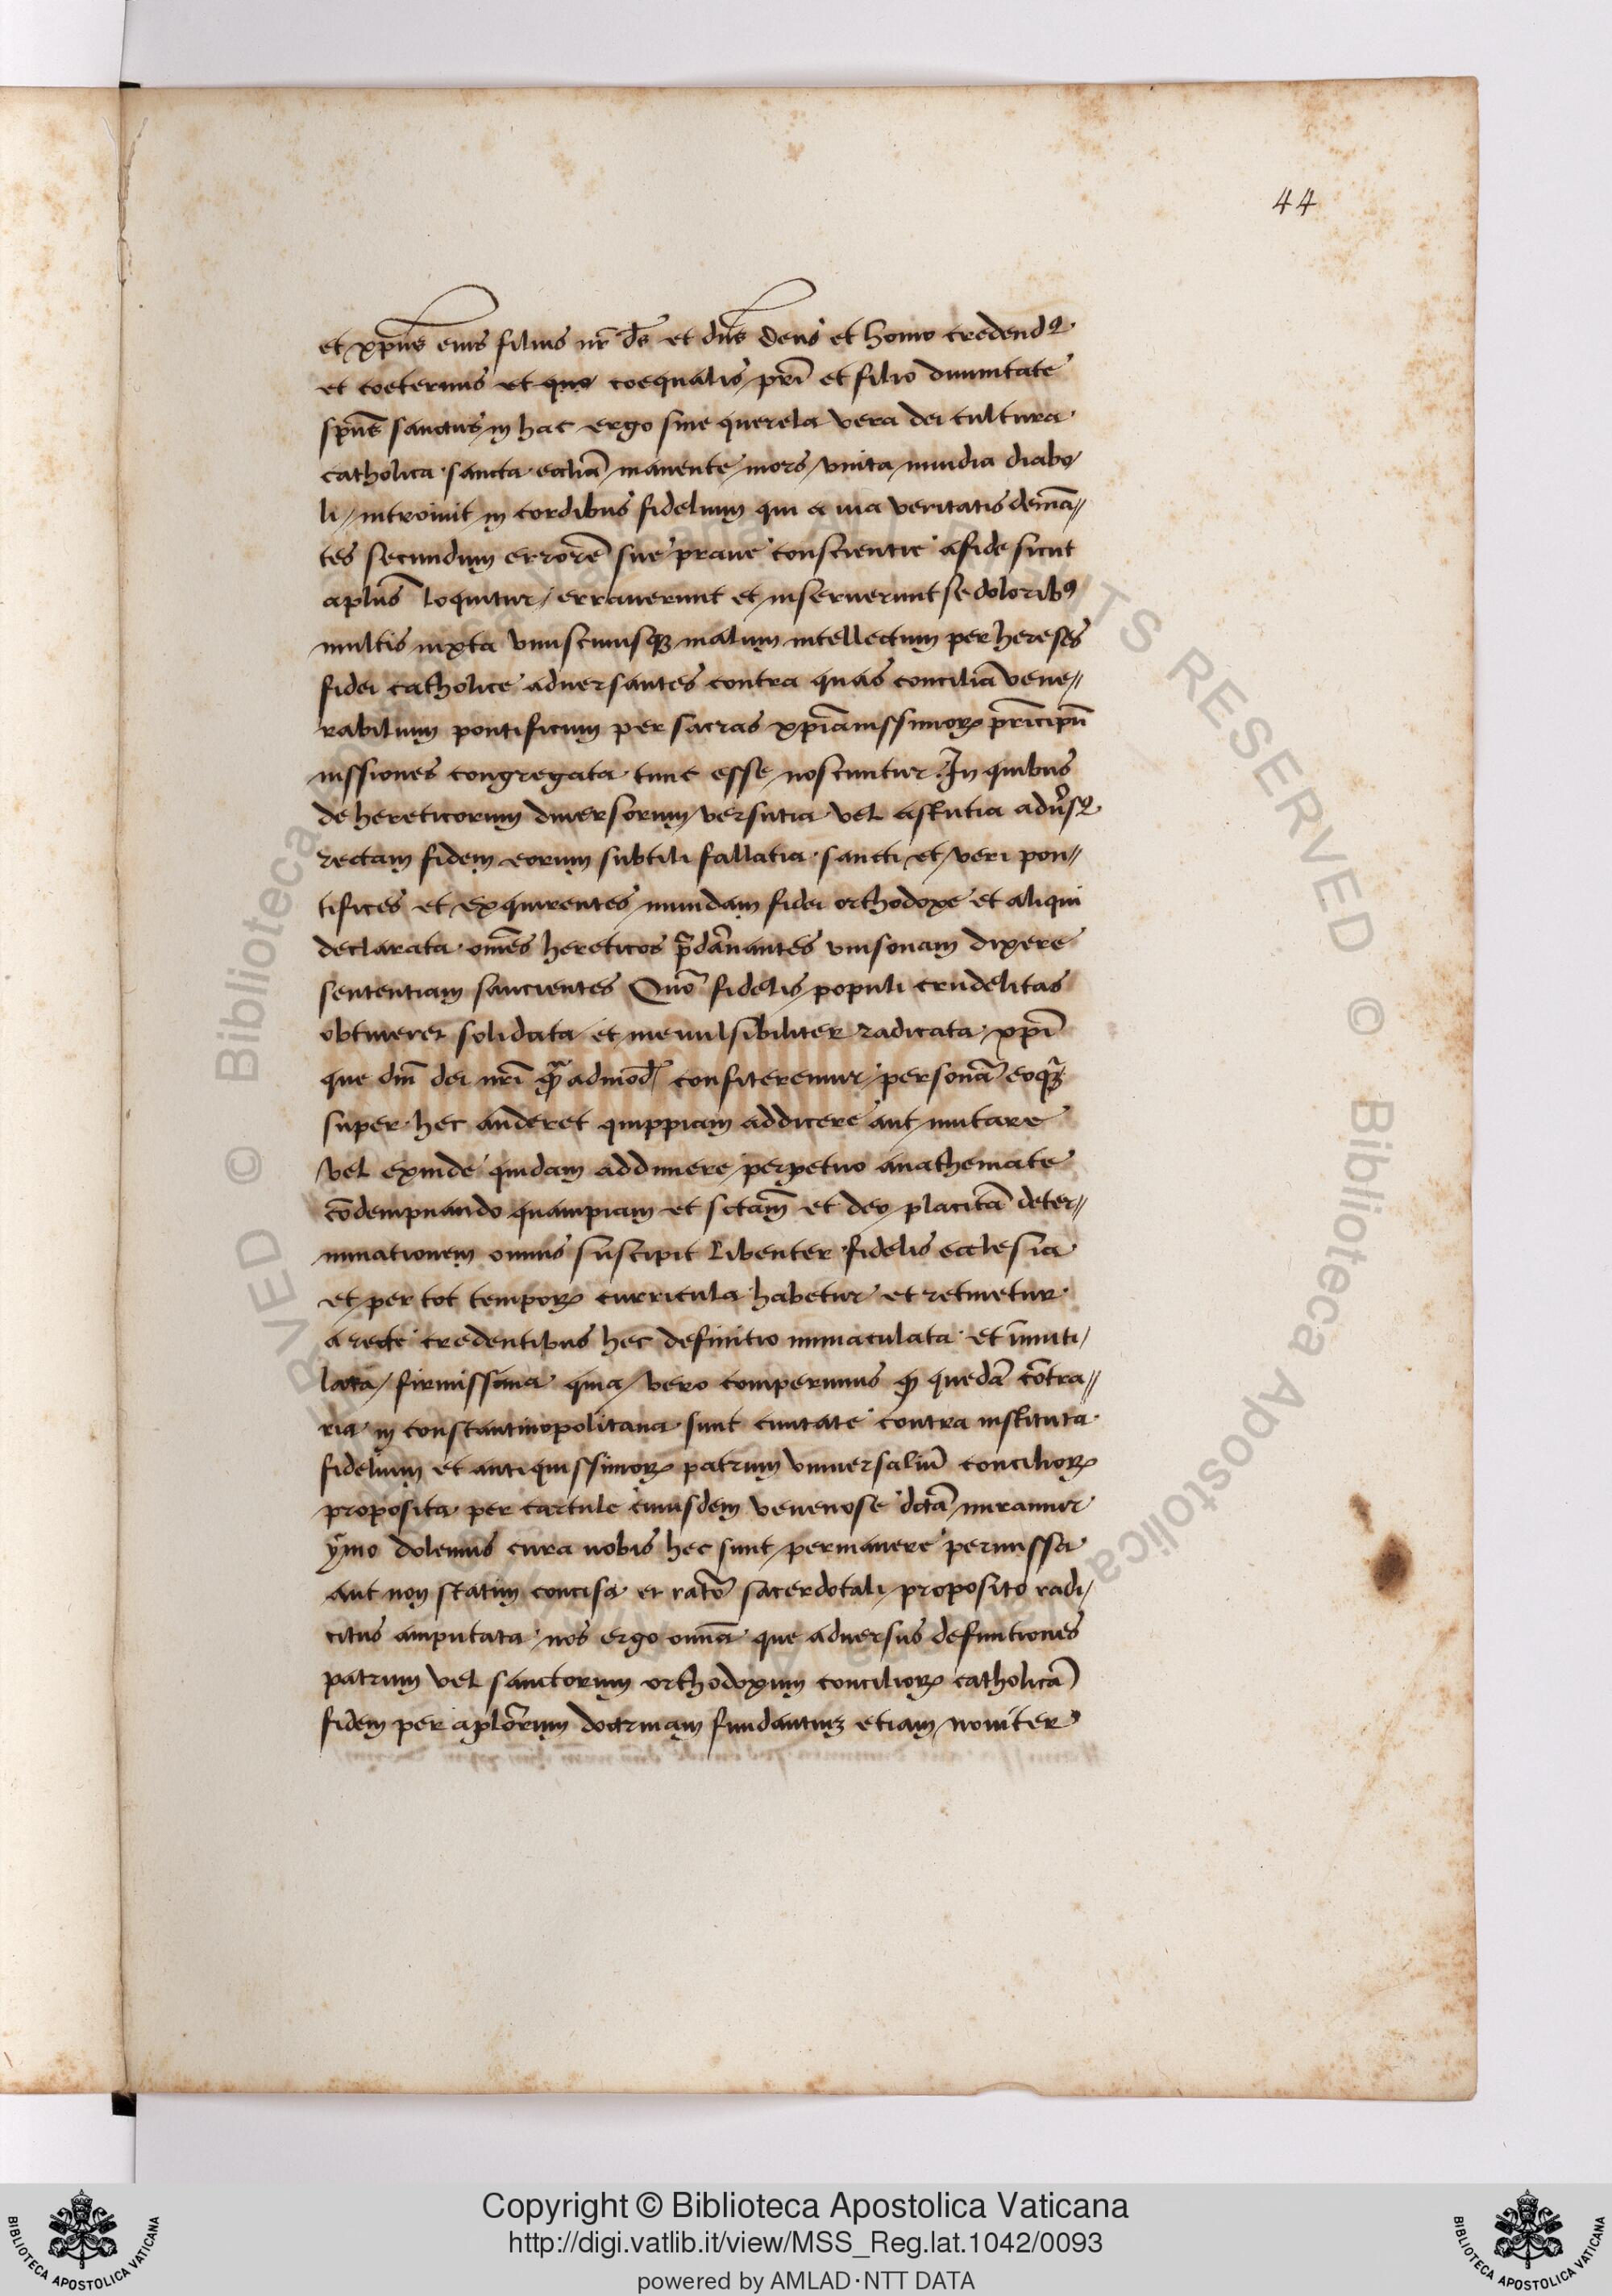 44
et xpūs eius filius nr̄ ds̄ et dn̄s deus et homo credendꝰ
et coeternus et quo coequalis pr̄i et filio diuinitate
sp̄us sanctus in hac ergo sine querela vera dei cultura
catholica sancta eccliā manente mors vnita inuidia diabo
li introiuit in cordibus fidelium qui a uia veritatis deuiā
tes secundum errorē sue praue conscientie a fide sicut
aplus̄ loquitur errauerunt et inseruerunt se doloribꝰ
multis iuxta vniuscuiusqꝫ malum intellectum per hereses
fidei catholice aduersantes contra quas conciliā vene
rabilium pontificum per sacras xp̄ianissimoꝝ prīncipū
iussiones congregata tunc esse noscuntur In quibus
de hereticorum diuersorum versutia vel astutia adūsꝰ
rectam fidem eorum subtili fallatia sancti et veri pon
tifices et exquirentes mundam fidei orthodoxe et aliqui
declarata om̄es hereticos p̄dānantes vnisonam dixere
sententiam sancientes Quō fidelis populi crudelitas
obtineret solidata et meuulsibiliter radicata xp̄i
que dn̄i dei nr̄i q̄ꝫ admod̄ confiteremur personā eoqꝫ
super hec auderet quippiam addicere aut mutare
vel exinde quidam addimere perpetuo anathemate
cōdempnando quampiam et sctām et deo placitā deter
minationem omnis suscipit libenter fidelis ecclesia
et per tot tempoꝝ curricula habetur et retinetur
a recte credentibus hec definitio immaculata et īmuti
lata firmissima quia vero comperimus qꝫ quedā cōtra
ria in constantinopolitana sunt ciuitate contra instituta
fidelium et antiquissimoꝝ patrum vniuersaliū concilioꝝ
proposita per cartule cuiusdem venenose dctā miramur
ymo dolemus cura nobis hec sunt permanere permissa
aut non statim concisa et ratōe sacerdotali proposito radi
citus amputata nos ergo omīa que aduersus definitiones
patrum vel sanctorum orthodoxum concilioꝝ catholicā
fidem per aplōrum doctrinam fundantiuꝫ etiam nouiter
Copyright © Biblioteca Apostolica Vaticana
http://digi.vatlib.it/view/MSS_Reg.lat.1042/0093
powered by AMLAD·NTT DATA